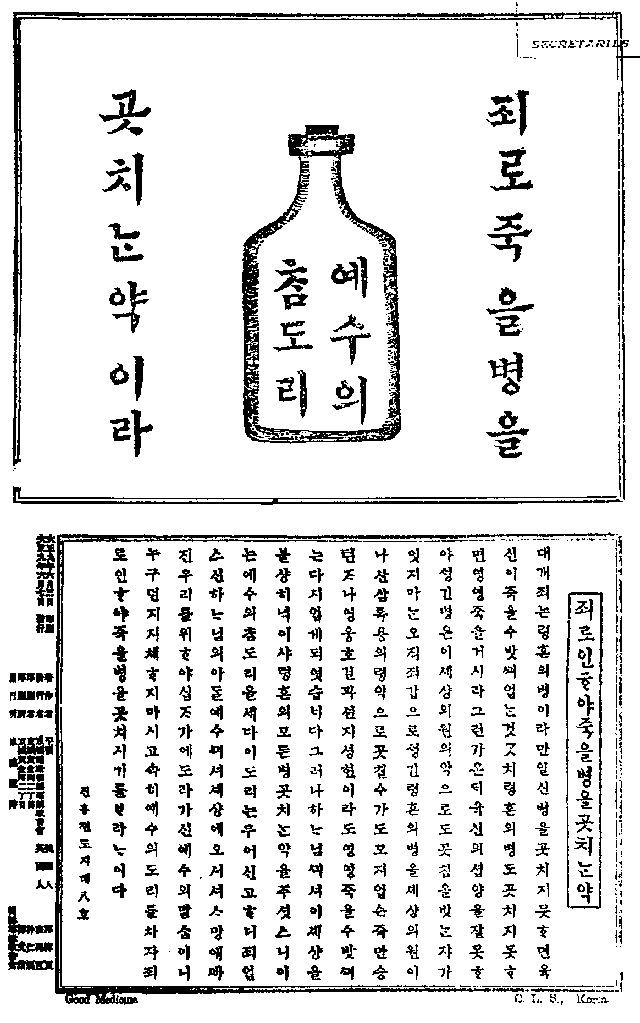 SECRETARIES
죄로죽을병을
예수의
ᄎᆞᆷ도리
곳치ᄂᆞᆫ약이라
죄로인ᄒᆞ야죽을병을곳치ᄂᆞᆫ약
대개죄ᄂᆞᆫ령혼의병이라만일신병을곳치지못ᄒᆞ면육
신이죽을수밧ᄭᅴ업ᄂᆞᆫ것ᄀᆞᆺ치령혼의병도곳치지못ᄒᆞ
면영영죽을거시라그런가온ᄃᆡ육신의섭양을잘못ᄒᆞ
야성긴병은이세상의원의약으로도곳침을밧ᄂᆞᆫ쟈가
잇지마ᄂᆞᆫ오직죄갑으로성긴령혼의병을세상의원이
나산삼록용의령약으로곳칠수가도모지업슨즉만승
텬ᄌᆞ나영웅호걸과현지성현이라도영영죽을수밧ᄭᅴ
ᄂᆞᆫ다시업게되엿습ᄂᆡ다그러나하ᄂᆞ님ᄭᅴ셔이세샹을
불샹히녁이샤령혼의모든병곳치ᄂᆞᆫ약을주셧스니이
ᄂᆞᆫ예수의ᄎᆞᆷ도리올세다이도리ᄂᆞᆫ죄업
스신하ᄂᆞ님의아ᄃᆞᆯ예수ᄭᅴ셔세샹에오셔셔ᄉᆞ망애ᄲᅡ
진우리를위ᄒᆞ야십ᄌᆞ가에도라가신예수의말ᄉᆞᆷ이니
누구던지지체ᄒᆞ지마시고속히예수의도리를차자죄
로인ᄒᆞ야죽을병을곳치시기를ᄇᆞ라ᄂᆞ이다
진흥젼도지뎨八호
Good Medicine
C. L. S., Korea.